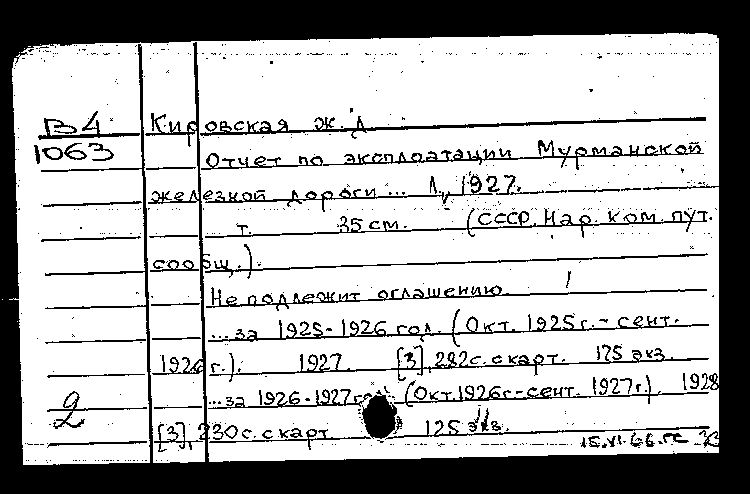 В4 Кировская ж. д
1063 Отчет по эксплоатации Мурманской
железной дороги... Л, 1927.
т. 35 см. (СССР. Нар. Ком. пут.
сообщ.).
Не подлежит оглашению
...за 1925-1926 год. (Окт. 1925 г. - сент.
1926 г.). 1927. [3], 282 с. с карт. 175 экз.
...за 1926-1927 (Окт. 1926 г. - сент. 1927 г.). 1928
2 [3], 230 с. с карт 125 экз.
15.VI.66.